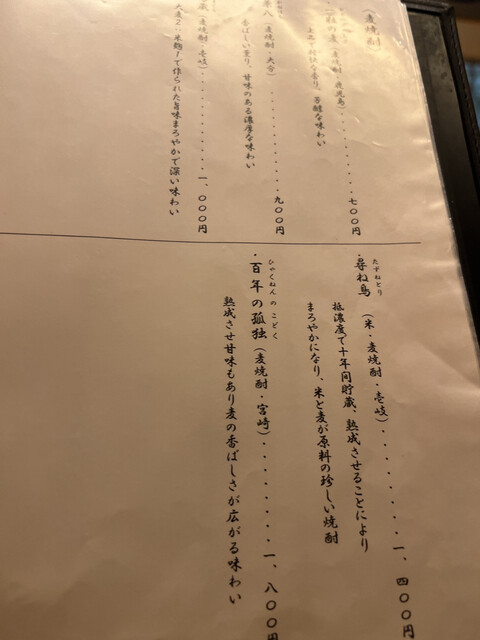 (麦焼酎)
の麦 (麦焼酎・鹿児島)・・・・・・・七〇〇円
上品で軽快な香り、芳醇な味わい
八 (麦焼酎・大分)・・・・・・・・・九〇〇円
香ばしい薫り、甘味のある濃厚な味わい
蔵 (麦焼酎・壱岐)・・・・・・・・・一、〇〇〇円
大麦2:米麹1で作られた旨味まろやかで深い味わい
たずねどり
・尋ね鳥 (米・麦焼酎・壱岐)・・・・・・・・・一、四〇〇円
抵濃度で十年間貯蔵、熟成させることにより
まろやかになり、米と麦が原料の珍しい焼酎
ひゃくねん の こどく
・百年の孤独 (麦焼酎・宮崎)・・・・・・・・・一、八〇〇円
熟成させ甘味もあり麦の香ばしさが広がる味わい